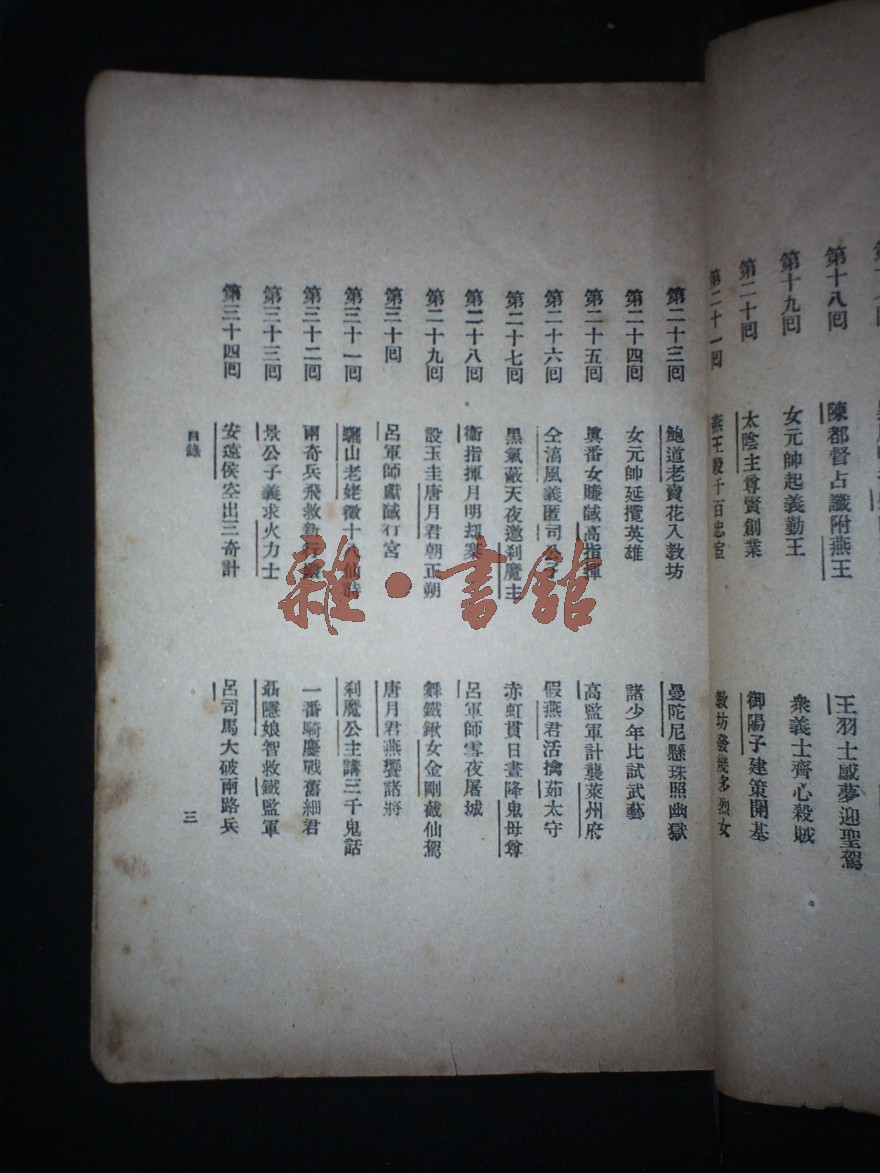 第十八囘 陳都督占讖附燕王 王羽士感夢迎聖駕
第十九囘 女元帥起義勤王 衆義士齊心殺賊
第二十囘 太陰主尊賢創業 御陽子建策開基
第二十一囘 燕王殺千百忠臣 教坊發幾多烈女
第二十三囘 鮑道老賣花入教坊 曼陀尼懸珠照幽獄
第二十四囘 女元帥延攬英雄 諸少年比試武藝
第二十五囘 眞番女賺馘高指揮 高監軍計襲萊州府
第二十六囘 仝淓風義匿司公子 假燕君活擒茹太守
第二十七囘 黑氣蔽天夜邀刹魔主 赤虹貫日晝降鬼母尊
第二十八囘 衞指揮月明刼寨 呂軍師雪夜屠城
第二十九囘 設玉圭唐月君朝正朔 舞鐵鍬女金剛截仙駕
第三十囘 呂軍師獻馘行宮 唐月君燕饗諸將
第三十一囘 驪山老姥徵十八仙詩 刹魔公主講三千鬼話
第三十二囘 兩奇兵飛救新行殿 一番騎鏖戰舊細君
第三十三囘 景公子義求火力士 聶隱娘智救鐵監軍
第三十四囘 安遠侯空出三奇計 呂司馬大破兩路兵
目錄
三
雜·書館